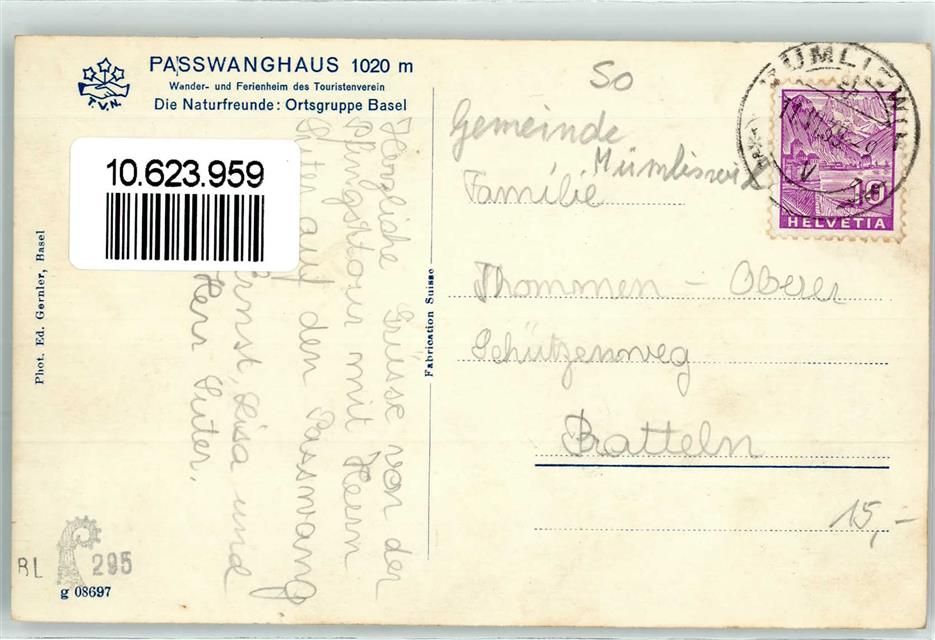 PASSWANGHAUS 1020 m
Wander- und Ferienheim des Touristenverein
Die Naturfreunde: Ortsgruppe Basel
T.V.N.
10.623.959
Herzliche Grüsse von der
Pfingsttour mit Herrn
Suter auf den Passwang
Ernst, Lisa und
Herr Suter.
Phot. Ed. Gernler, Basel
Fabrication Suisse
So
Gemeinde
Mümliswil
Familie
Thommen - Oberer
Schützenweg
Pratteln
15,-
MÜMLISWIL
10
HELVETIA
BL
295
g 08697